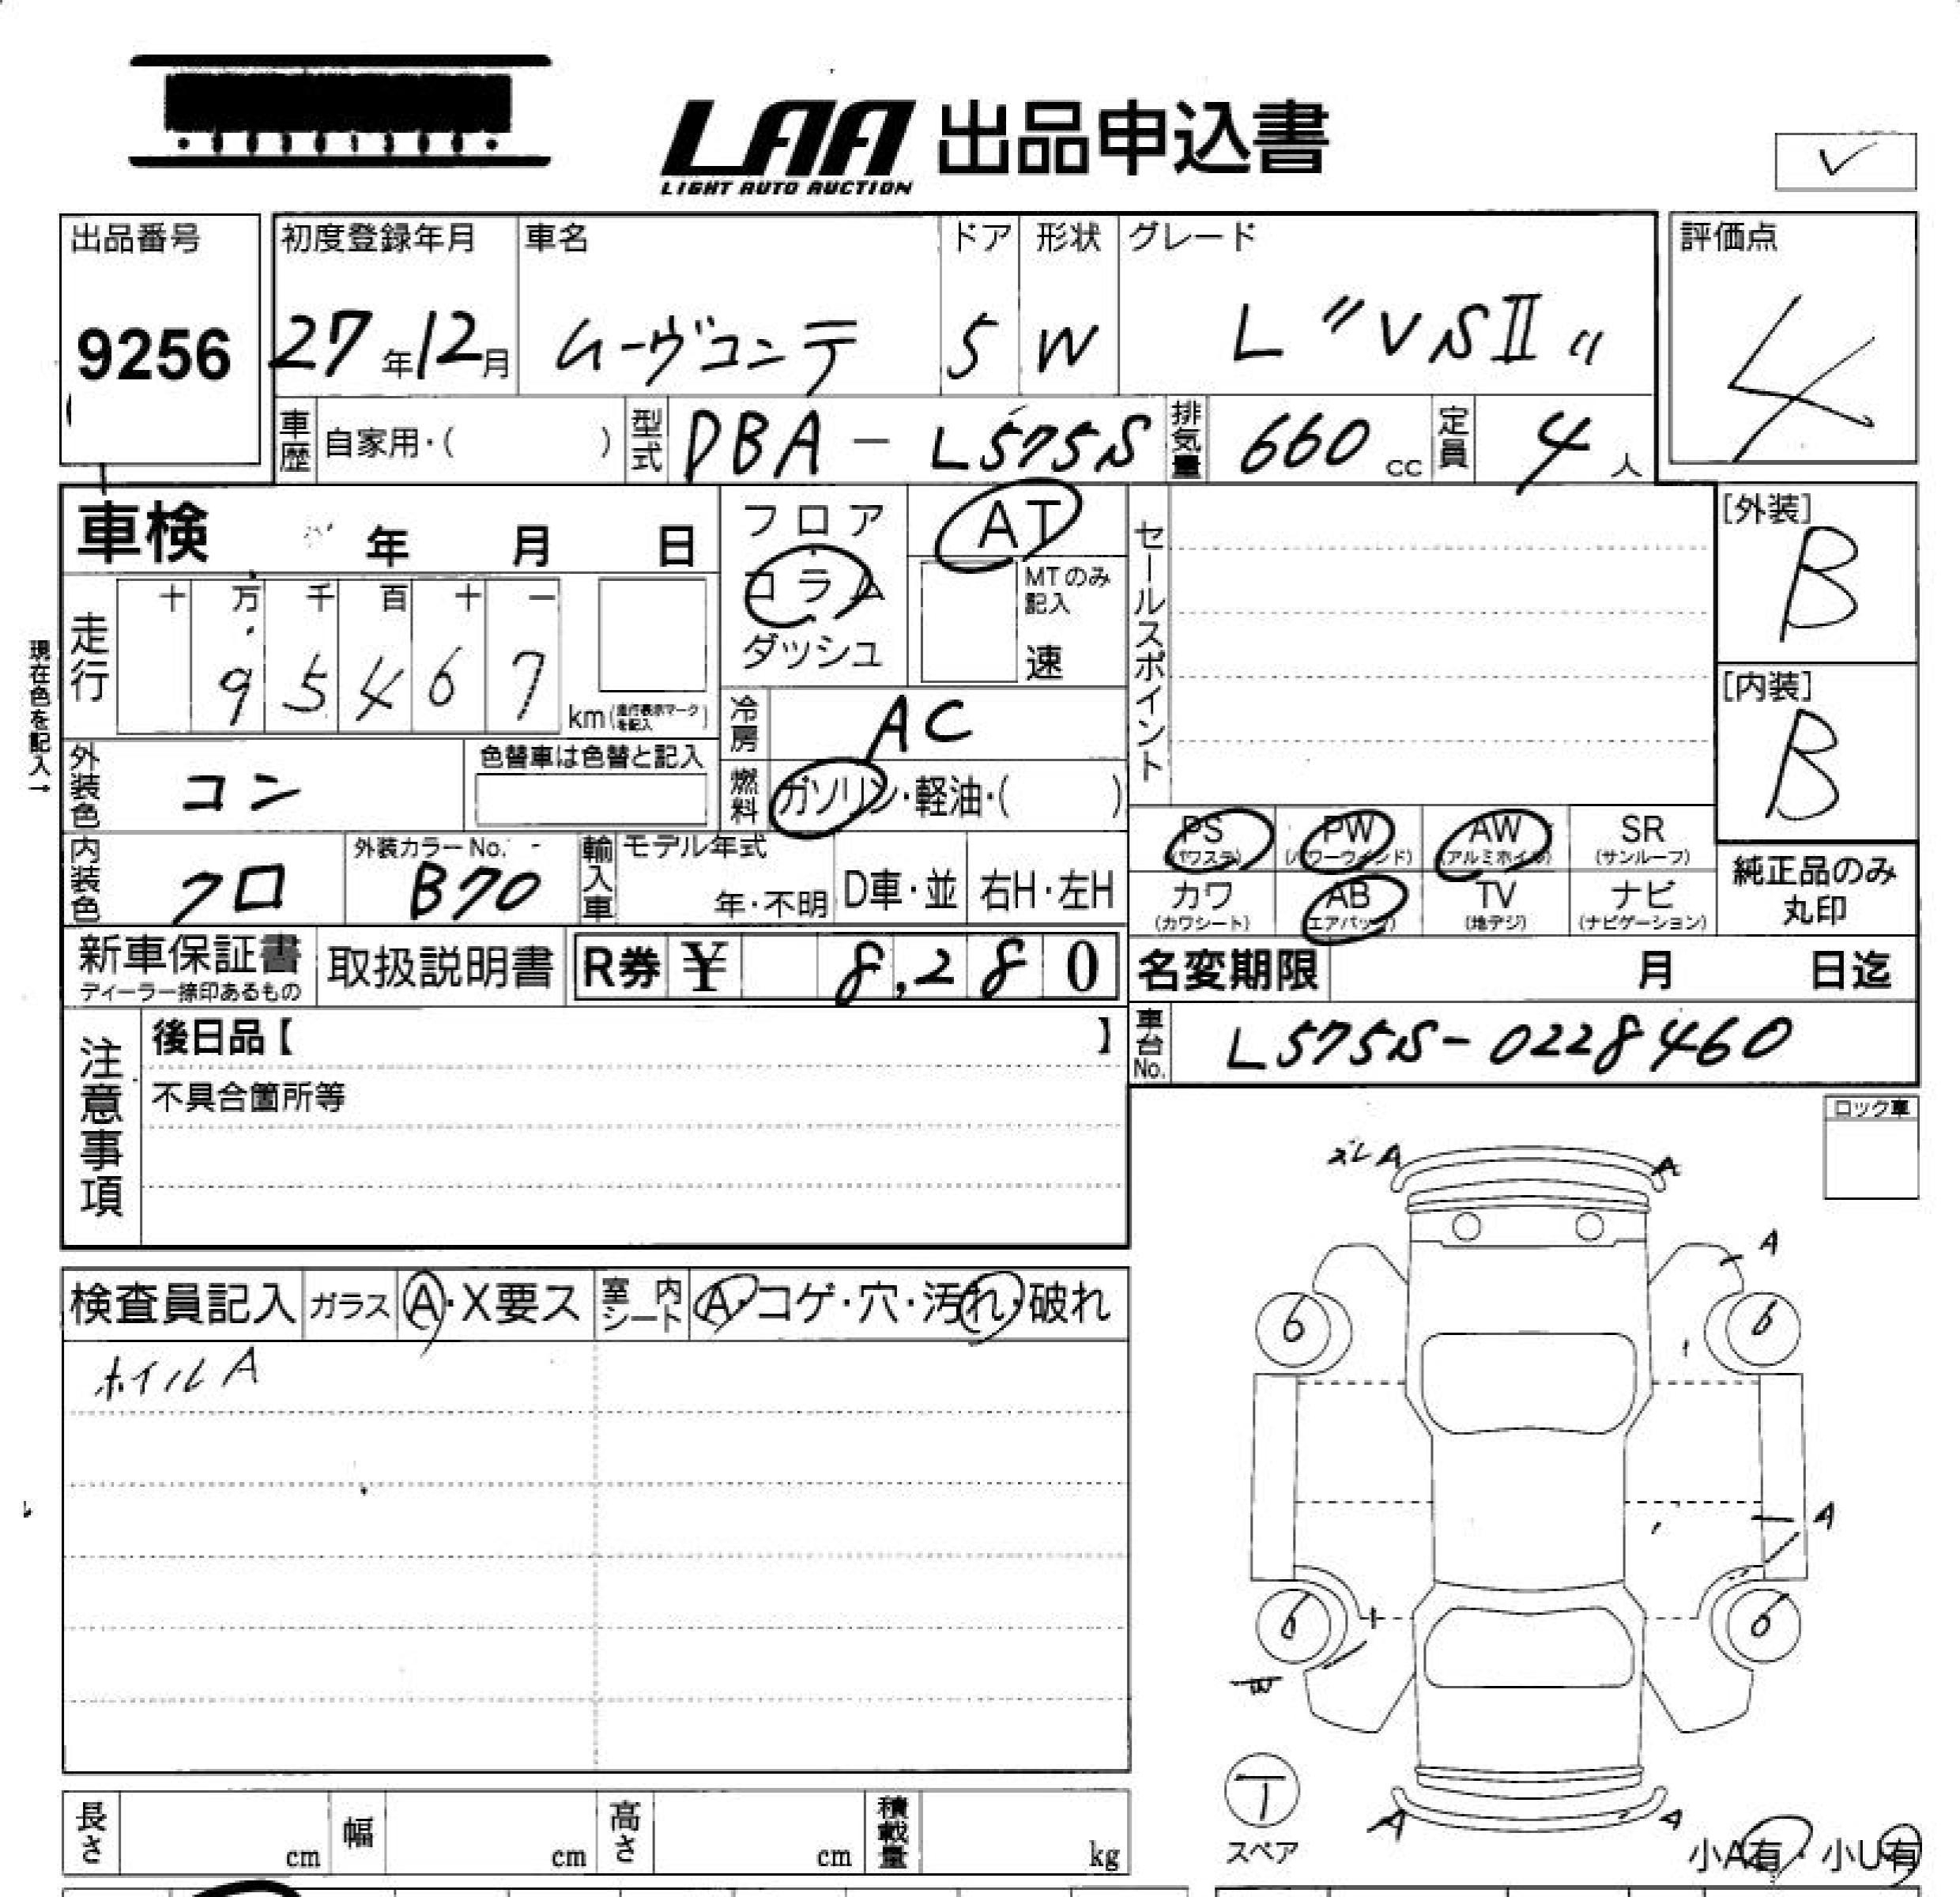 LAA 出品申込書
LIGHT AUTO AUCTION
出品番号 初度登録年月 車名 ドア 形状 グレード 評価点
9256 27年12月 ムーヴコンテ 5 W L "VSII" 4
車歴 自家用・( ) 型式 DBA - L575S 排気量 660 cc 定員 4 人
車検 年 月 日 フロア AT セールスポイント [外装] B
コラム MTのみ記入
ダッシュ 速
現在色を記入→
走行 十 万 千 百 十 一
9 5 4 6 7 km (走行表示マークを記入)
冷房 AC [内装] B
外装色 コン 色替車は色替と記入 燃料 ガソリン・軽油・( )
PS (パワステ) PW (パワーウインド) AW (アルミホイル) SR (サンルーフ)
内装色 クロ 外装カラーNo. B70 輸入車 モデル年式 年・不明 D車・並 右H・左H
カワ (カワシート) AB (エアバッグ) TV (地デジ) ナビ (ナビゲーション) 純正品のみ丸印
新車保証書 ディーラー捺印あるもの 取扱説明書 R券 ¥ 8,280 名変期限 月 日迄
注意事項 後日品【 】 車台No. L575S-0228460
不具合箇所等
ロック車
ズレ A A
A
検査員記入 ガラス A・X要ス 室内シート A・コゲ・穴・汚れ・破れ
6 6
ホイルA
A
6 6
W
T
スペア
A A
小A有・小U有
長さ cm 幅 cm 高さ cm 積載量 kg